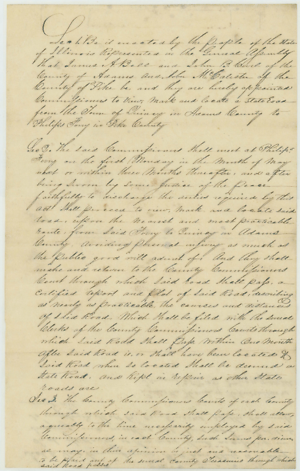 Sec 1. Be it enacted by the People of the State
of Illinois Represented in the General Assembly
that James A Bell and John B Curl of the
County of Adams and John McCalister of the
County of Pike be and they are hereby appointed
Commissioners to View Mark and locate a State Road
from the Town of Quincy in Adams County to
Philips Ferry in Pike County
Sec 2. The said Commissioners shall meet at Philips
Ferry on the first Monday in the Month of May
next or within three Months thereafter and after
being Sworn by some Justice of the Peace
faithfully to discharge the duties required by this
act they proceed to view mark and locate said
road upon the nearest and most practicable
route from said Ferry to Quincy in Adams
County Avoiding personal injury as much as
the Public good will admit of And they shall
make and return to the County Commissioners
Court through which Said road shall pass a
certified report and Plat of said Road
as nearly as practicable the courses and distances
of said Road. Which shall be filed with the
Clerks of the County Commissioners Courts through
which said Road shall Pass Within One Month
After said Road is or shall have been located &
Said Road when so located shall be deemed a
State Road. And kept in repair as other State
roads are
Sec 3. The County Commissioners Courts of each County
through which said Road shall pass shall allow
agreeably to the time necessarily employed by said
Commissioners in each County, such Sums per diem
as may in their opinion be just and reasonable
to be paid out of the County Treasuries through which
said road passes